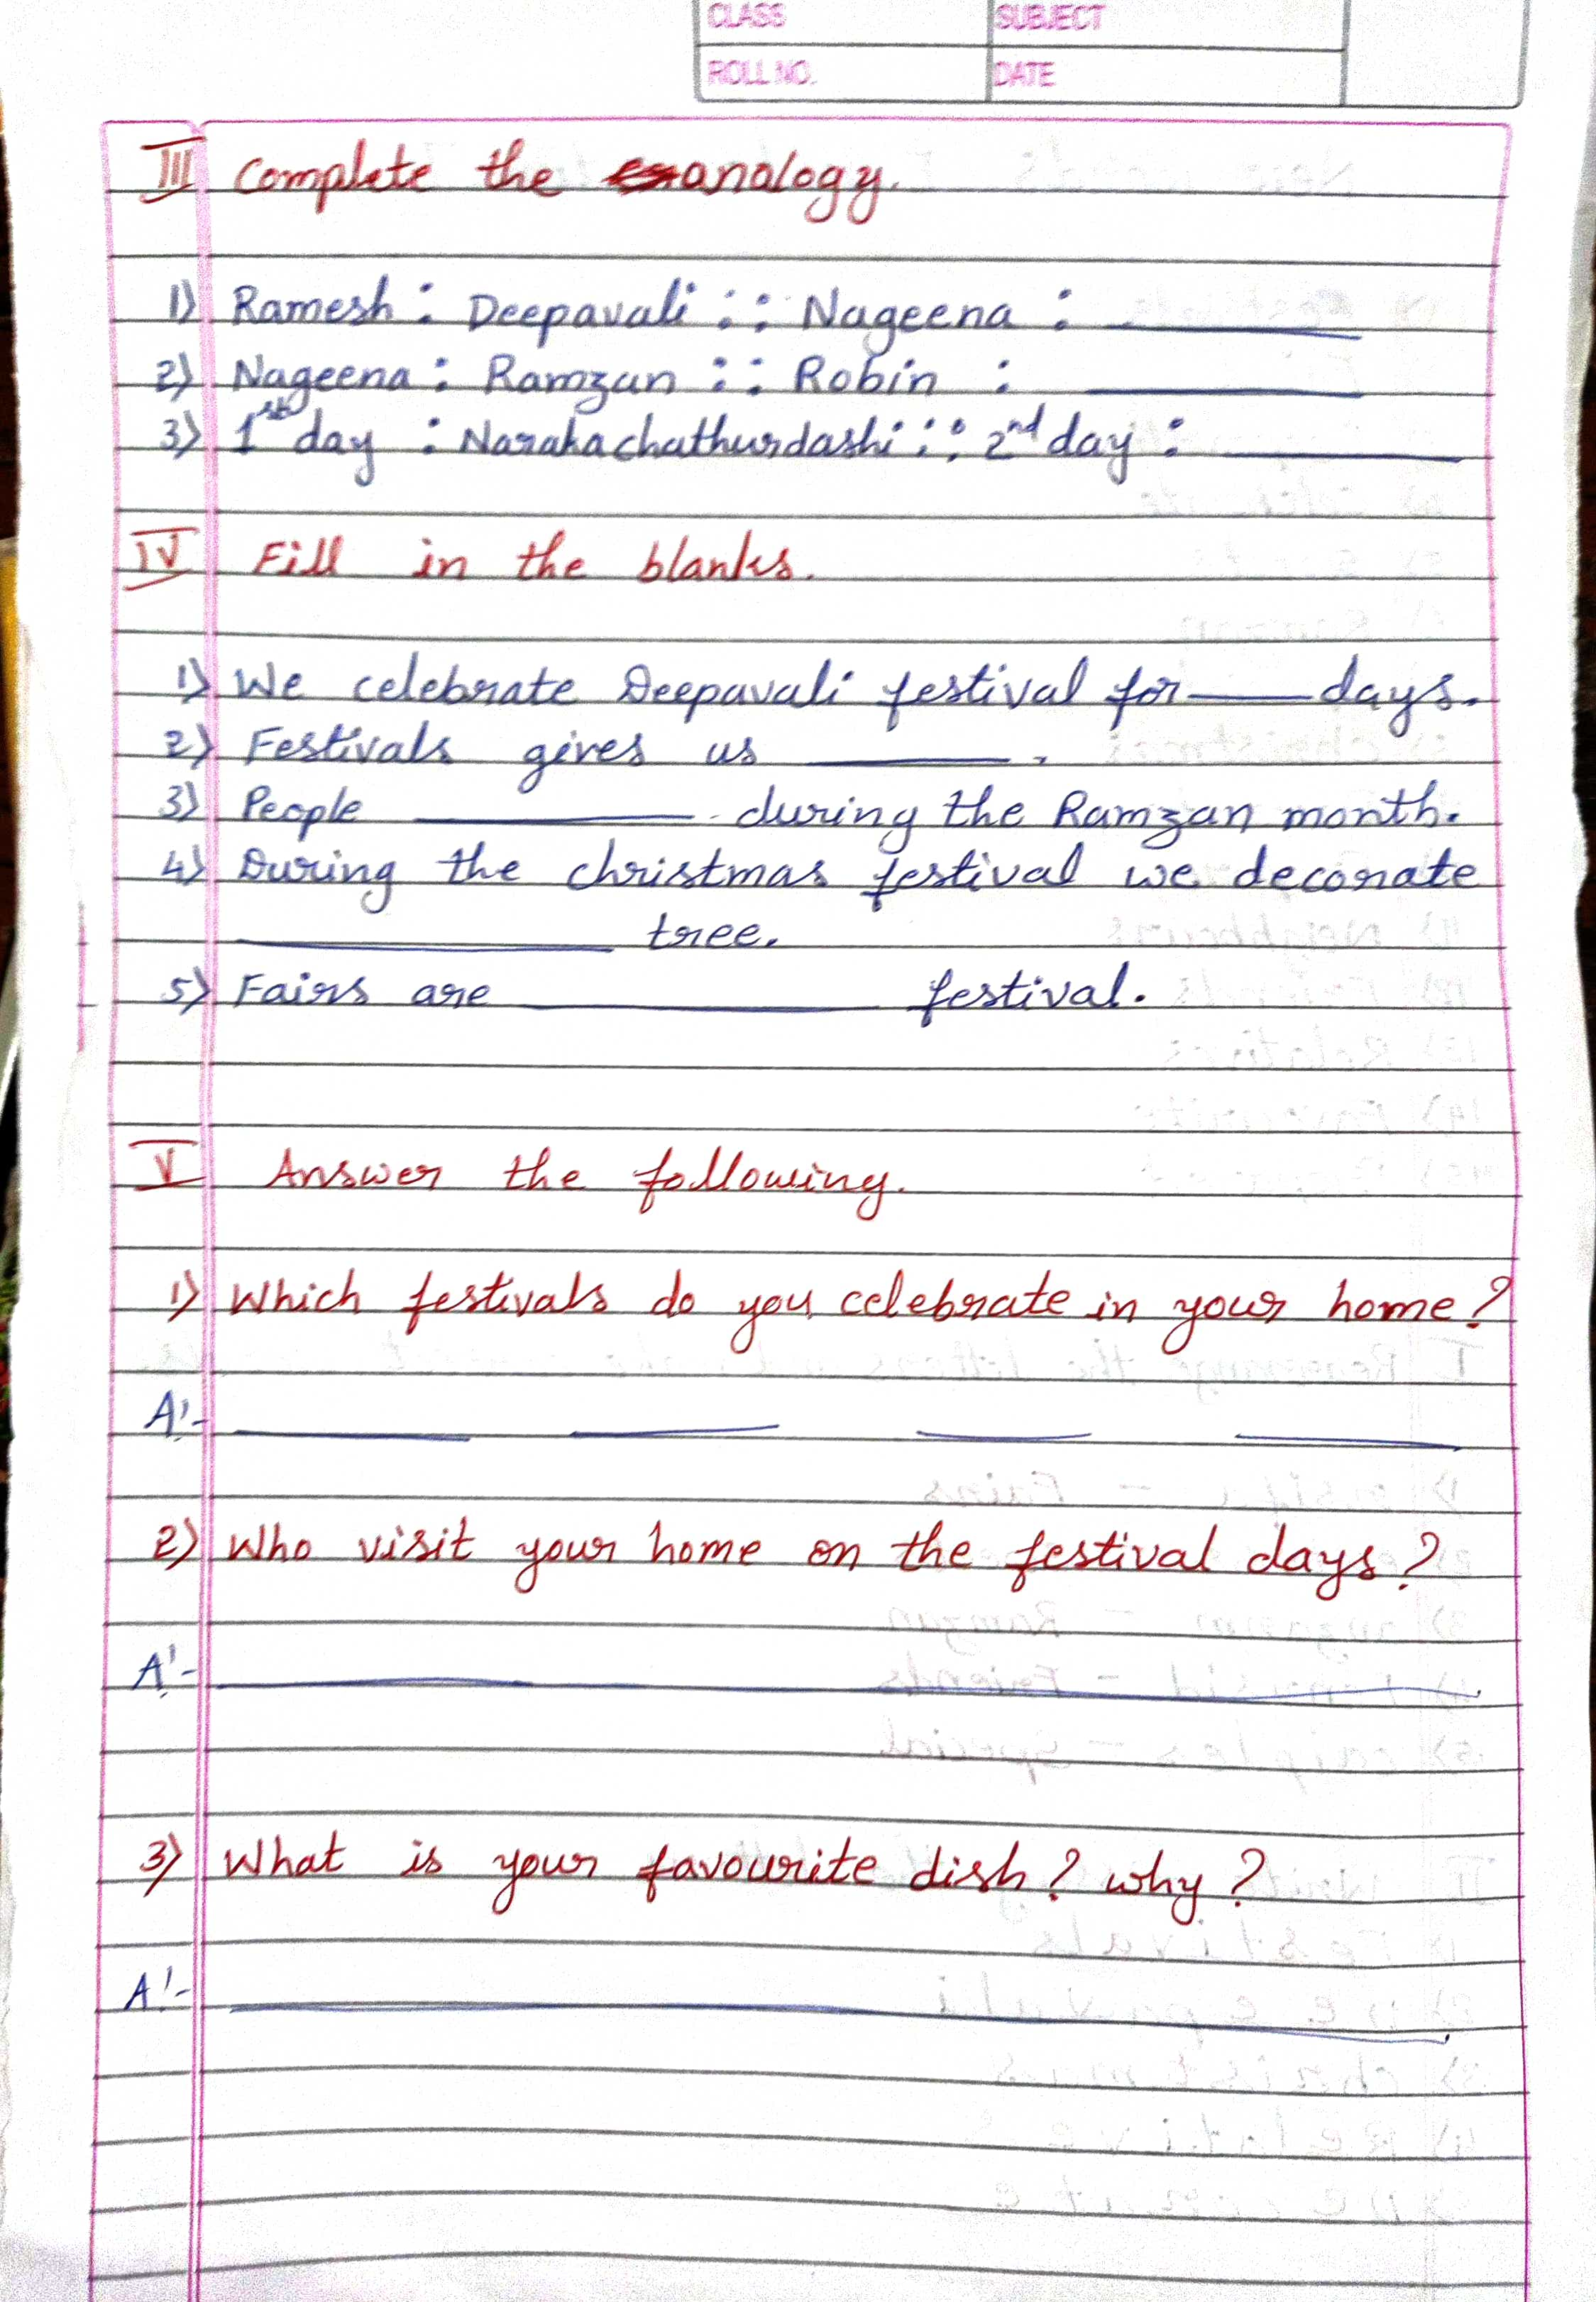 CLASS SUBJECT
ROLL NO. DATE
III Complete the analogy.
1) Ramesh : Deepavali :: Nageena : ________
2) Nageena : Ramzan :: Robin : ________
3) 1st day : Narakachathurdashi :: 2nd day : ________
IV Fill in the blanks.
1) We celebrate Deepavali festival for ____ days.
2) Festivals gives us ________.
3) People ________ during the Ramzan month.
4) During the christmas festival we decorate
________ tree.
5) Fairs are ________ festival.
V Answer the following.
1) Which festivals do you celebrate in your home?
A:- ____ ____ ____ ____
2) Who visit your home on the festival days?
A:- ________
3) What is your favourite dish? why?
A:- ________